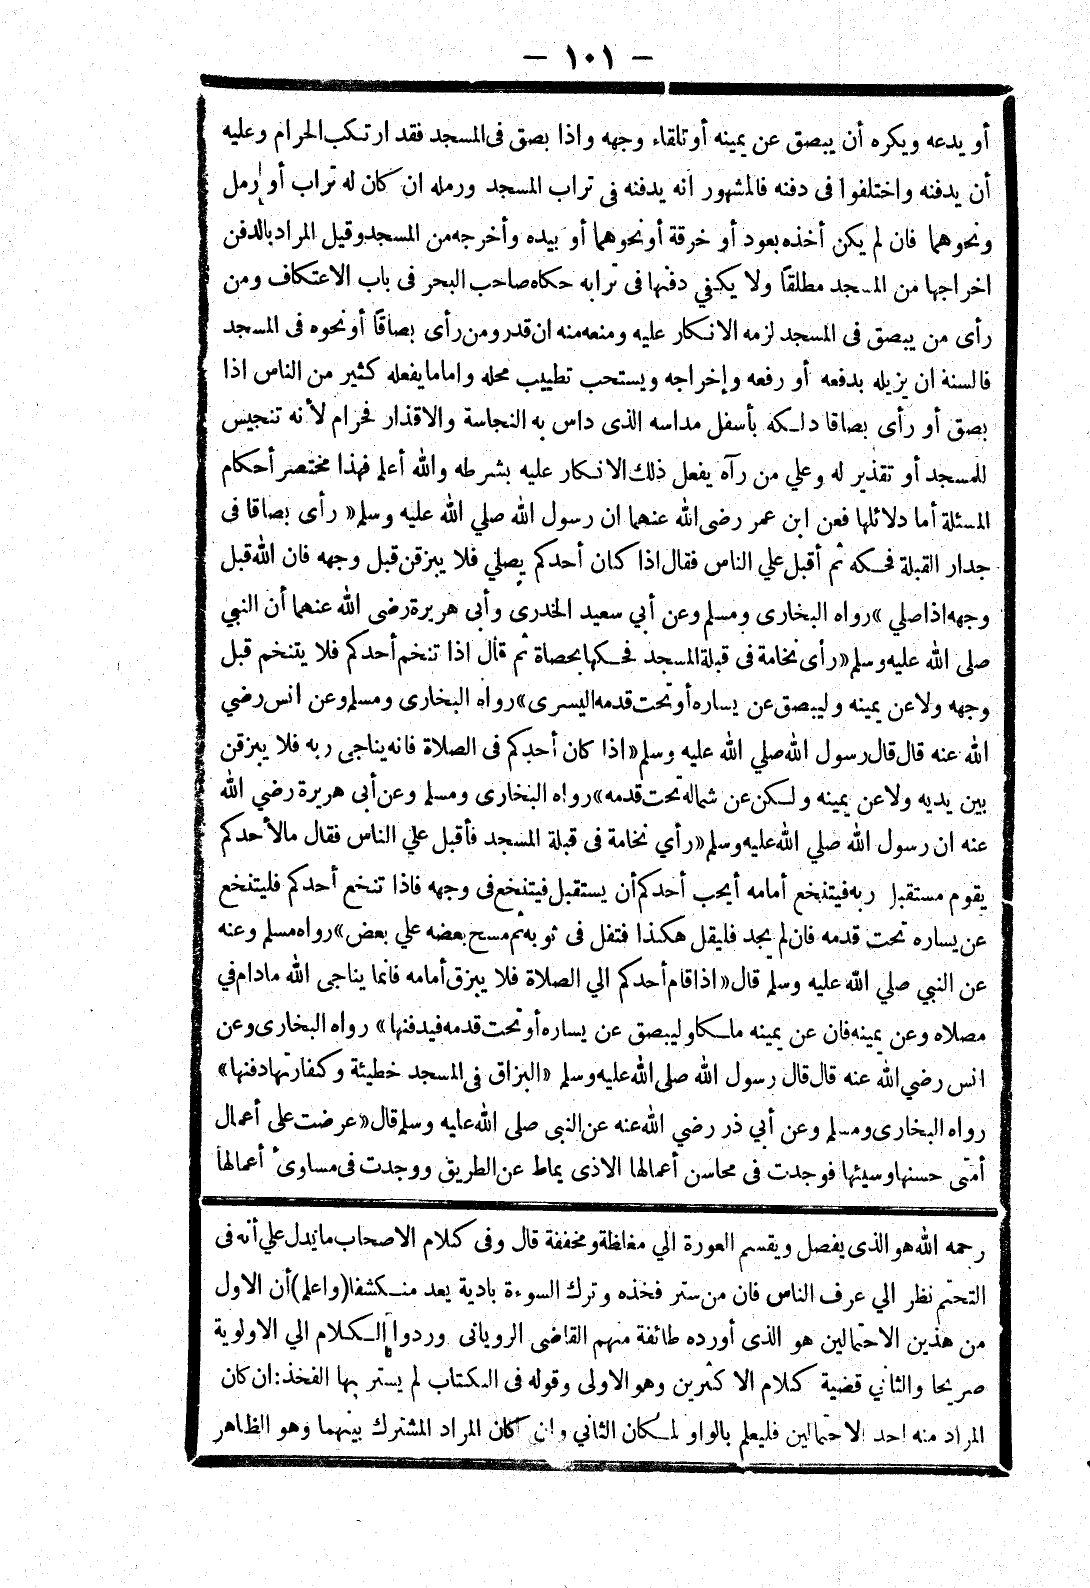 — ١٠١ —
أو يدعه ويكره أن يبصق عن يمينه أو تلقاء وجهه واذا بصق فى المسجد فقد ارتكب الحرام وعليه
أن يدفنه واختلفوا فى دفنه فالمشهور انه يدفنه فى تراب المسجد ورمله ان كان له تراب أو رمل
ونحوهما فان لم يكن أخذه بعود أو خرقة أو نحوهما أو بيده وأخرجه من المسجد وقيل المراد بالدفن
اخراجها من المسجد مطلقًا ولا يكفي دفنها فى ترابه حكاه صاحب البحر فى باب الاعتكاف ومن
رأى من يبصق فى المسجد لزمه الانكار عليه ومنعه منه ان قدر ومن رأى بصاقًا أو نحوه فى المسجد
فالسنة ان يزيله بدفعه أو رفعه وإخراجه ويستحب تطييب محله واما ما يفعله كثير من الناس اذا
بصق أو رأى بصاقا دلكه بأسفل مداسه الذى داس به النجاسة والاقذار فحرام لأنه تنجيس
للمسجد أو تقذير له وعلي من رآه يفعل ذلك الانكار عليه بشرطه والله أعلم فهذا مختصر أحكام
المسئلة أما دلائلها فعن ابن عمر رضى الله عنهما ان رسول الله صلي الله عليه وسلم « رأى بصاقا فى
جدار القبلة فحكه ثم أقبل علي الناس فقال اذا كان أحدكم يصلي فلا يبزقن قبل وجهه فان الله قبل
وجهه اذا صلي » رواه البخارى ومسلم وعن أبي سعيد الخدرى وأبى هريرة رضى الله عنهما أن النبي
صلى الله عليه وسلم « رأى نخامة فى قبلة المسجد فحكها بحصاة ثم قال اذا تنخم أحدكم فلا يتنخم قبل
وجهه ولا عن يمينه وليبصق عن يساره أو تحت قدمه اليسرى » رواه البخارى ومسلم وعن انس رضي
الله عنه قال قال رسول الله صلي الله عليه وسلم « اذا كان أحدكم فى الصلاة فانه يناجى ربه فلا يبزقن
بين يديه ولا عن يمينه ولكن عن شماله تحت قدمه » رواه البخارى ومسلم وعن أبى هريرة رضي الله
عنه ان رسول الله صلي الله عليه وسلم « رأي نخامة فى قبلة المسجد فأقبل علي الناس فقال مالأحدكم
يقوم مستقبل ربه فيتنخع أمامه أيحب أحدكم أن يستقبل فيتنخع فى وجهه فاذا تنخع أحدكم فليتنخع
عن يساره تحت قدمه فان لم يجد فليقل هكذا فتفل فى ثوبه ثم مسح بعضه علي بعض » رواه مسلم وعنه
عن النبي صلي الله عليه وسلم قال « اذا قام أحدكم الي الصلاة فلا يبزق أمامه فانما يناجى الله مادام في
مصلاه وعن يمينه فان عن يمينه ملكا وليبصق عن يساره أو تحت قدمه فيدفنها » رواه البخارى وعن
انس رضي الله عنه قال قال رسول الله صلى الله عليه وسلم « البزاق فى المسجد خطيئة وكفارتها دفنها »
رواه البخارى ومسلم وعن أبي ذر رضي الله عنه عن النبى صلى الله عليه وسلم قال « عرضت على أعمال
أمتى حسنها وسيئها فوجدت فى محاسن أعمالها الاذى يماط عن الطريق ووجدت فى مساوىء أعمالها
رحمه الله هو الذى يفصل ويقسم العورة الي مغلظة ومخففة قال وفى كلام الاصحاب ما يدل علي أنه فى
التحتم نظر الي عرف الناس فان من ستر فخذه وترك السوءة بادية يعد منكشفا (واعلم) أن الاول
من هذين الاحتمالين هو الذى أورده طائفة منهم القاضى الرويانى وردوا الكلام الي الاولوية
صريحا والثاني قضية كلام الاكثرين وهو الاولى وقوله فى الكتاب لم يستر بها الفخذ : ان كان
المراد منه احد الاحتمالين فليعلم بالواو لمكان الثاني وان كان المراد المشترك بينهما وهو الظاهر